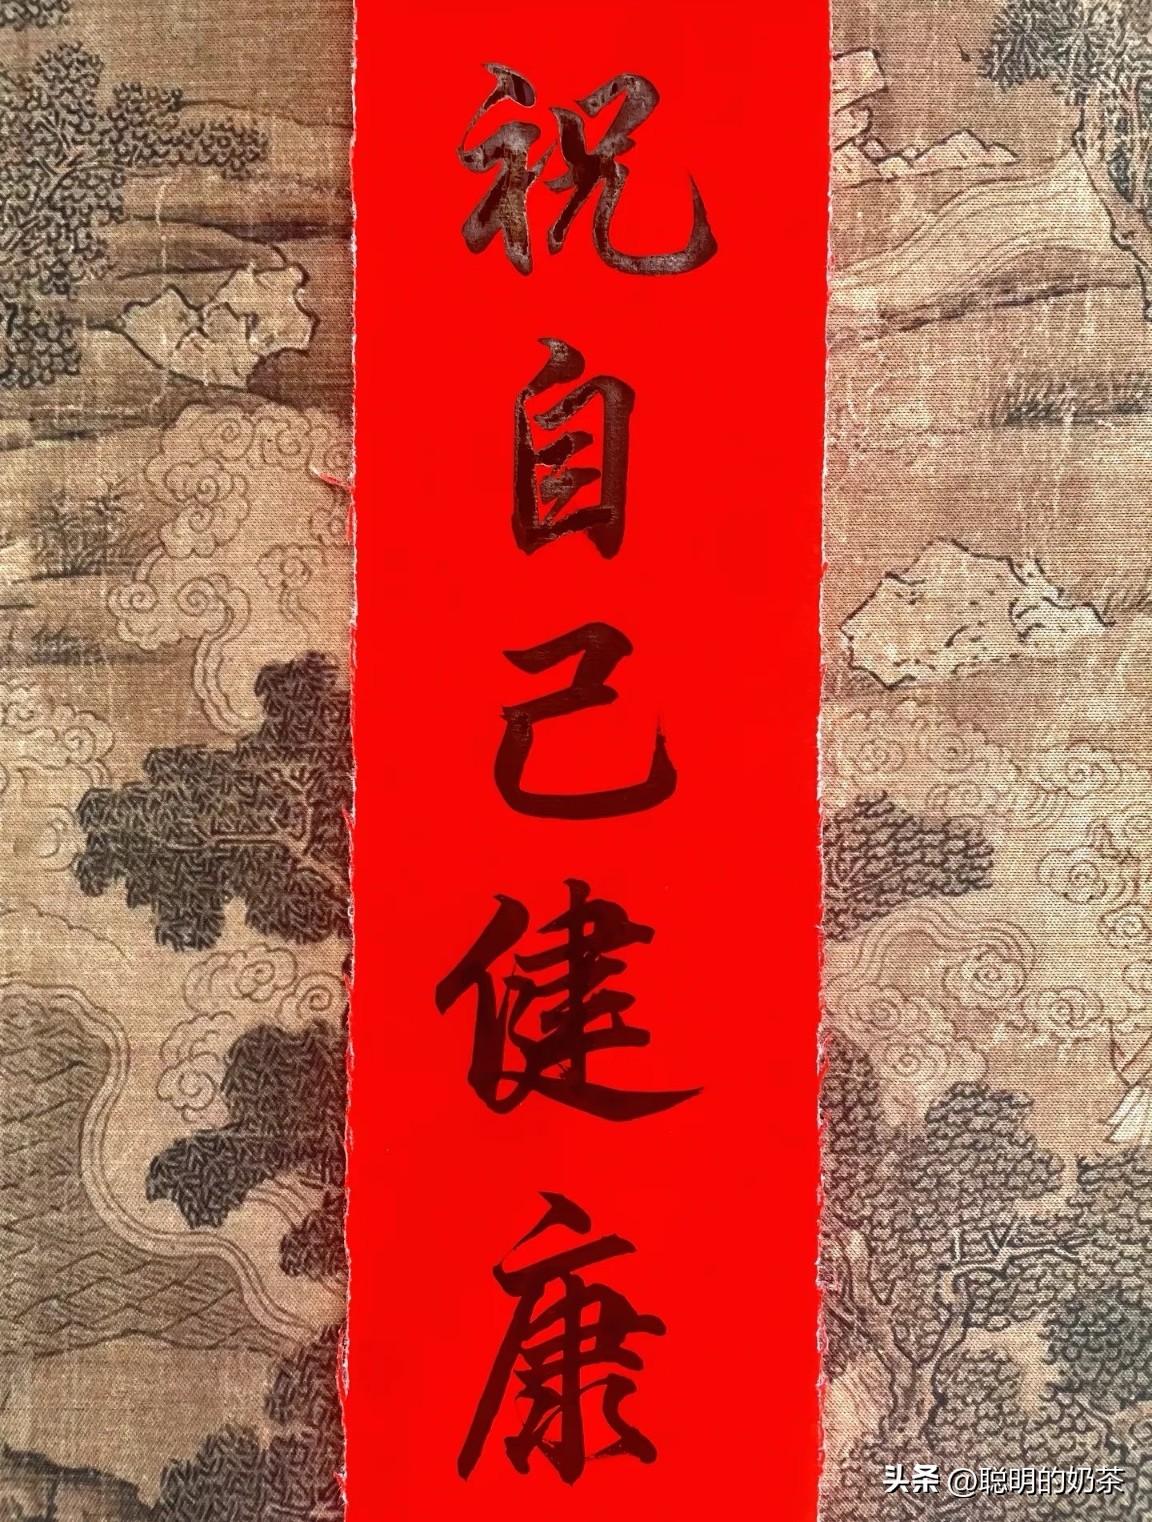 祝自己健康
头条 @聪明的奶茶